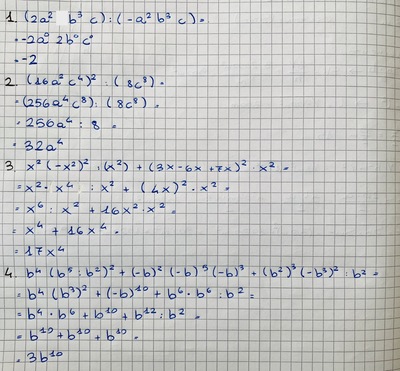 1. (2a² b³ c) : (-a² b³ c) =
= -2a⁰ 2b⁰ c⁰
= -2
2. (16a²c⁴)² : (8c⁸) =
= (256a⁴c⁸) : (8c⁸) =
= 256a⁴ : 8 =
= 32a⁴
3. x²(-x²)² : (x²) + (3x-6x+7x)² · x² =
= x² · x⁴ : x² + (4x)² · x² =
= x⁶ : x² + 16x² · x² =
= x⁴ + 16x⁴ =
= 17x⁴
4. b⁴(b⁵ : b²)² + (-b)² (-b)⁵ (-b)³ + (b²)³ (-b³)² : b² =
= b⁴ (b³)² + (-b)¹⁰ + b⁶ · b⁶ : b² =
= b⁴ · b⁶ + b¹⁰ + b¹² : b² =
= b¹⁰ + b¹⁰ + b¹⁰ =
= 3b¹⁰